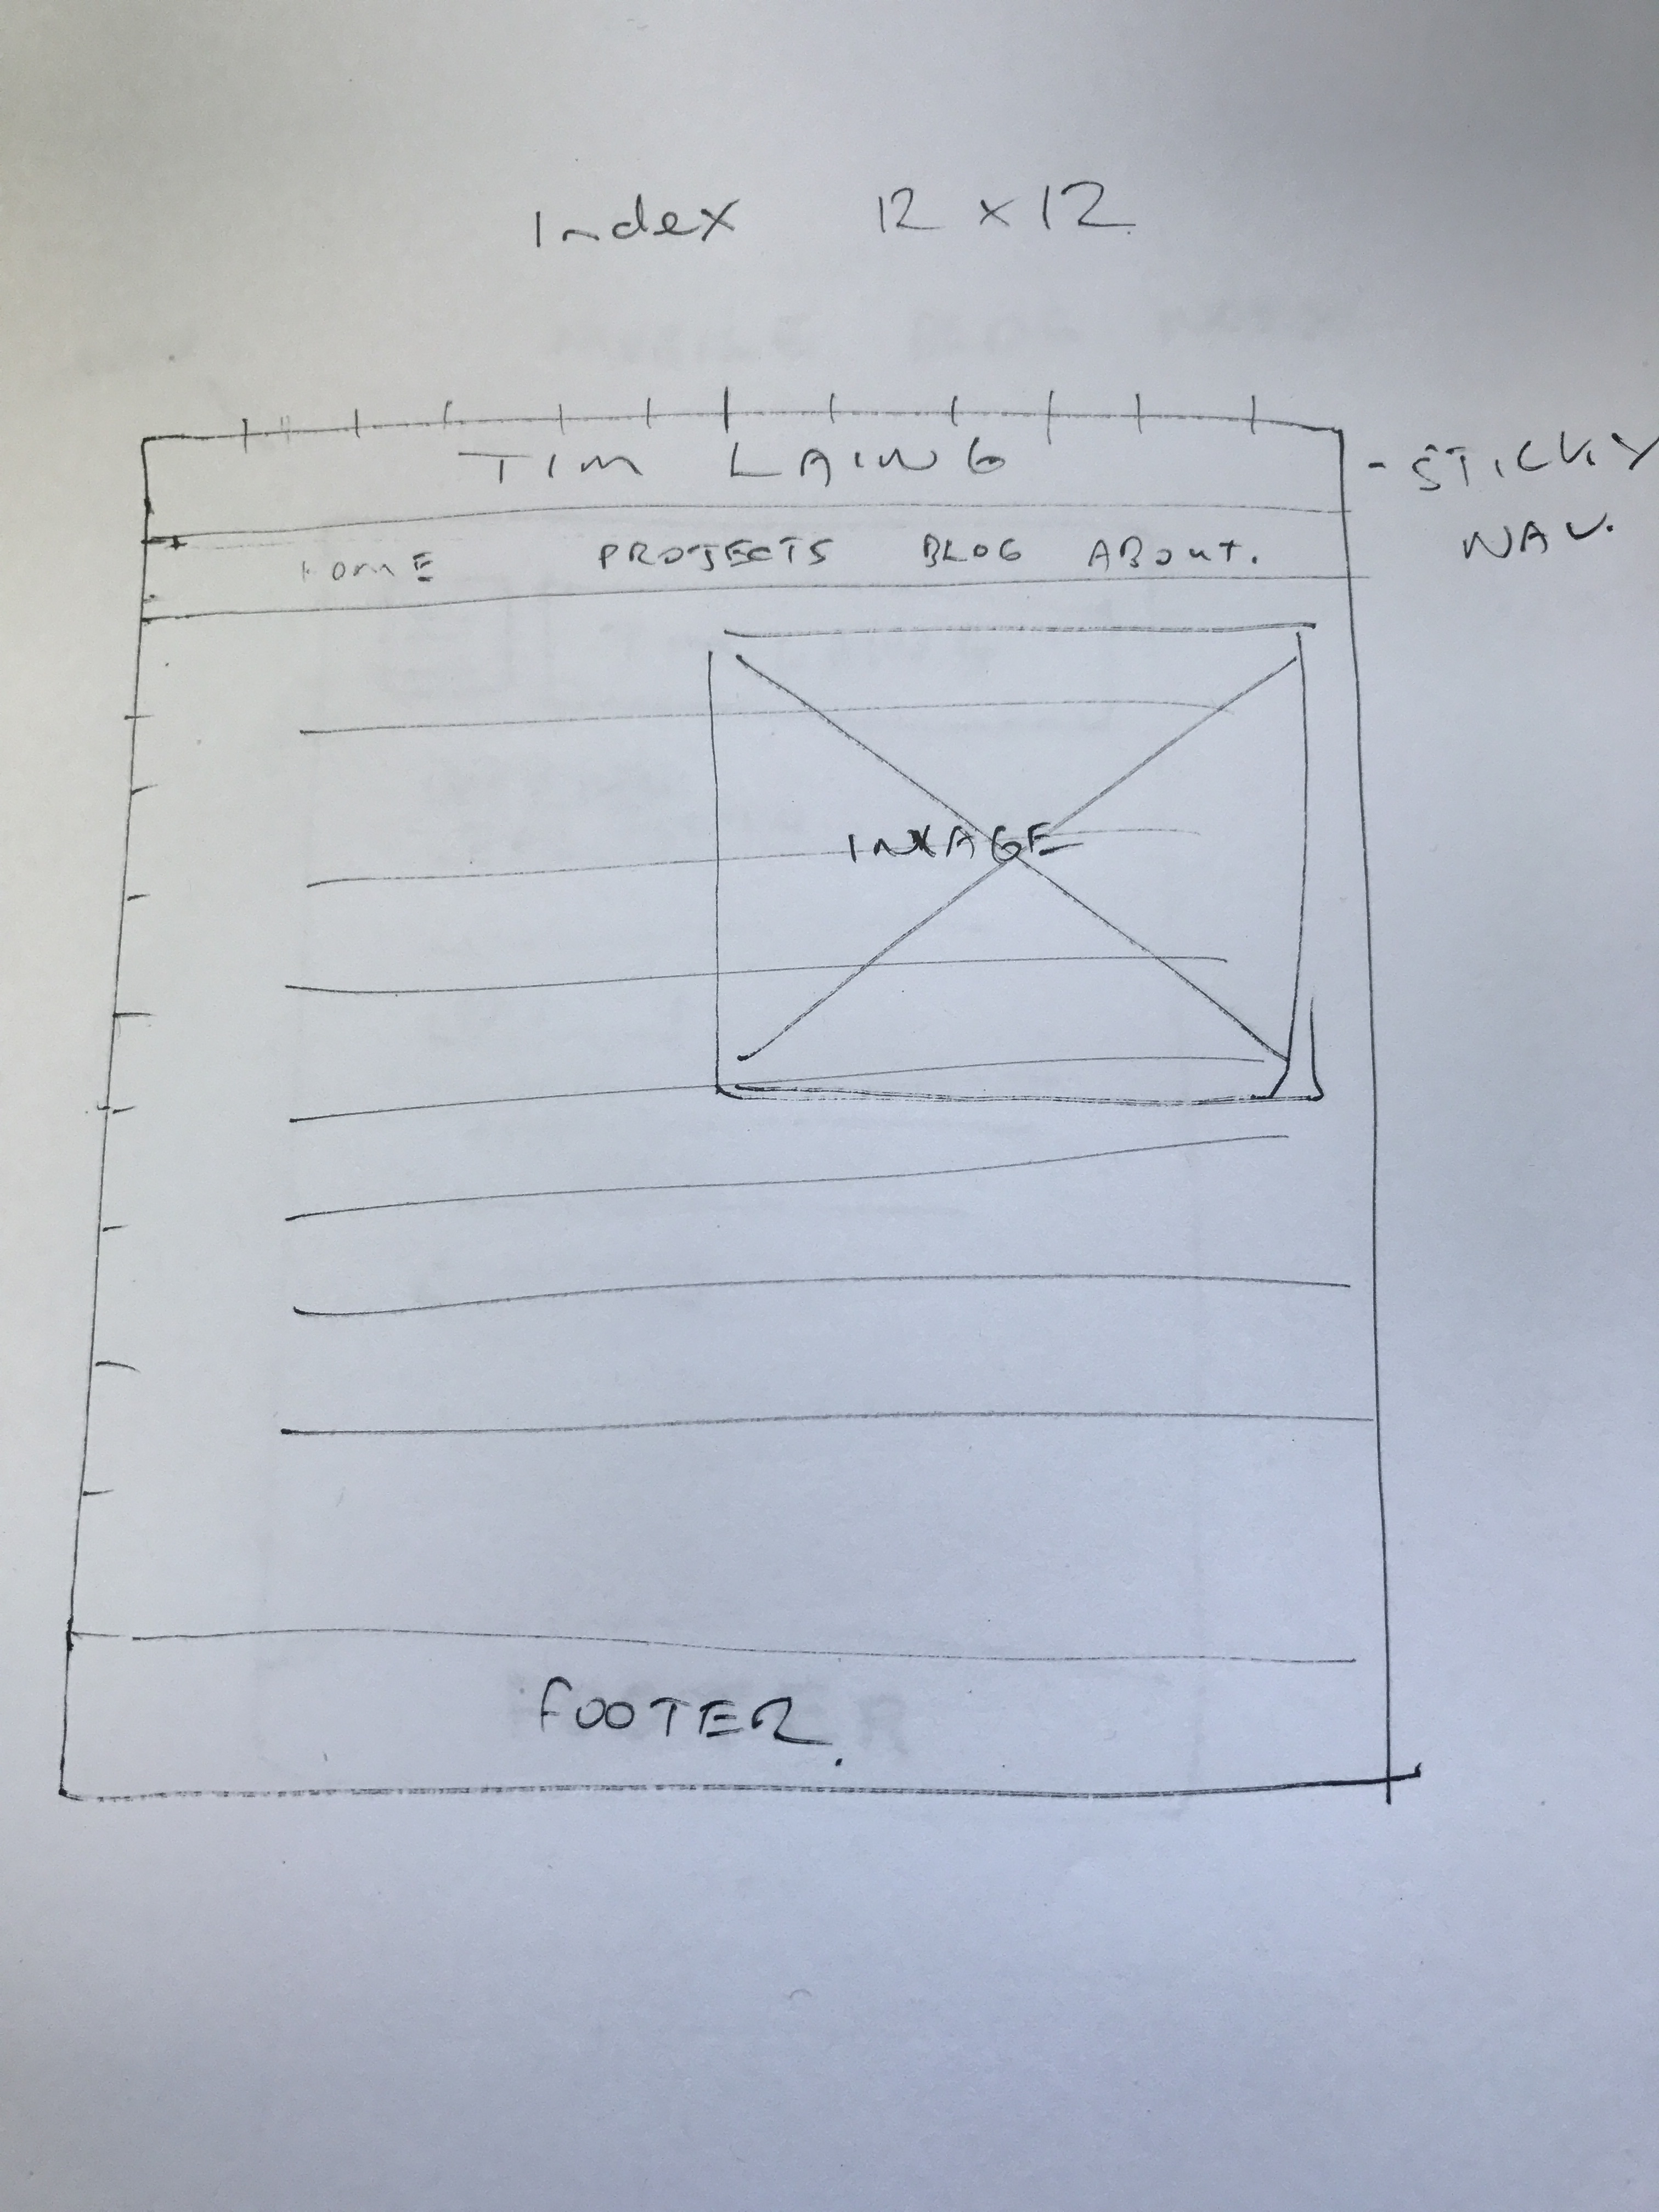 Index 12 x 12
TIM LAING
- STICKY
NAV.
HOME PROJECTS BLOG ABOUT.
IMAGE
FOOTER.